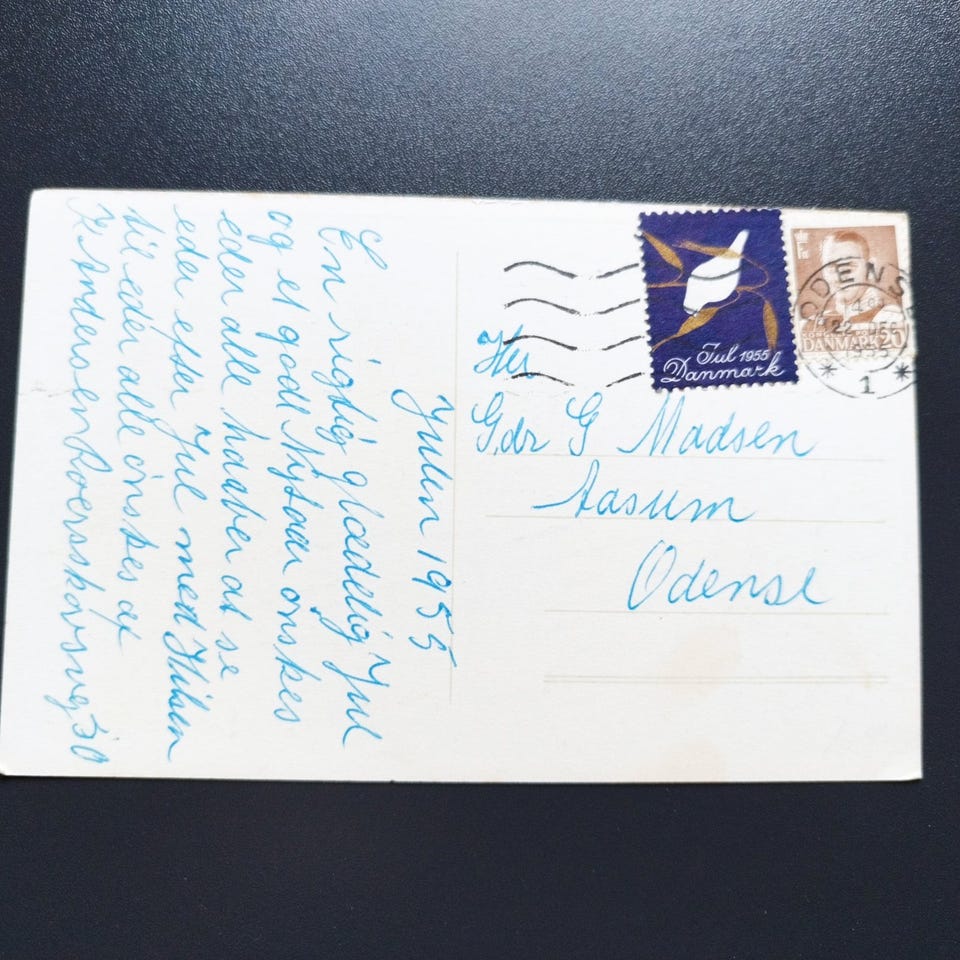 Julen 1955
En rigtig glædelig Jul
og et godt Nytaar ønskes
eder alle haaber at se
eder efter Jul med Hilsen
til eder alle ønskes af
Andersen
30
Jul 1955
Danmark
DANMARK 20
ODENSE
22 DEC
1955
1
Hr
Gdr G Madsen
Aasum
Odense